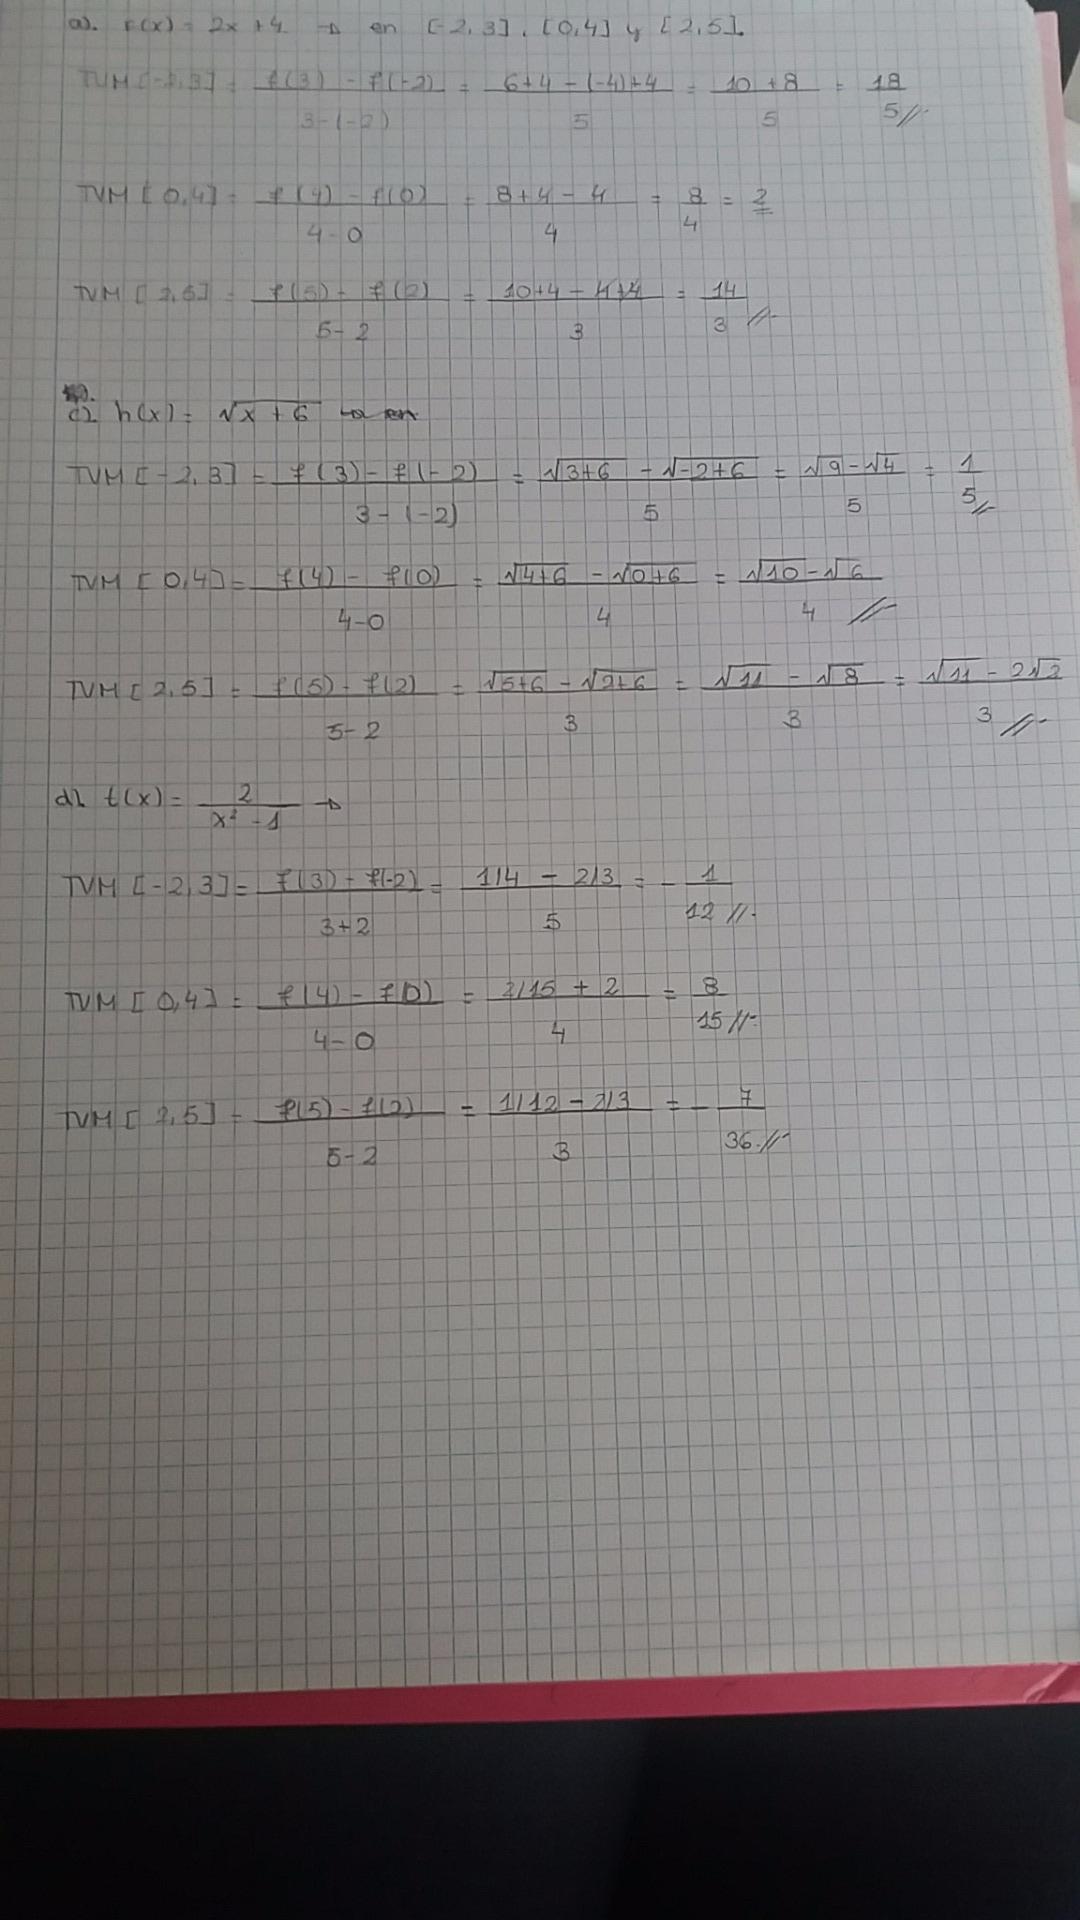 a). f(x) = 2x + 4 → en [-2,3], [0,4] y [2,5].
TVM [-2,3] = f(3) - f(-2) / 3-(-2) = 6+4 - (-4)+4 / 5 = 10 + 8 / 5 = 18 / 5 //
TVM [0,4] = f(4) - f(0) / 4-0 = 8+4 - 4 / 4 = 8 / 4 = 2
TVM [2,5] = f(5) - f(2) / 5-2 = 10+4 - 4+4 / 3 = 14 / 3 //
c) h(x) = √x+6 → en
TVM [-2,3] = f(3) - f(-2) / 3-(-2) = √3+6 - √-2+6 / 5 = √9 - √4 / 5 = 1 / 5 //
TVM [0,4] = f(4) - f(0) / 4-0 = √4+6 - √0+6 / 4 = √10 - √6 / 4 //
TVM [2,5] = f(5) - f(2) / 5-2 = √5+6 - √2+6 / 3 = √11 - √8 / 3 = √11 - 2√2 / 3 //
d) t(x) = 2 / x² - 1 →
TVM [-2,3] = f(3) - f(-2) / 3+2 = 1/4 - 2/3 / 5 = - 1 / 12 //
TVM [0,4] = f(4) - f(0) / 4-0 = 2/15 + 2 / 4 = 8 / 15 //
TVM [2,5] = f(5) - f(2) / 5-2 = 1/12 - 2/3 / 3 = - 7 / 36 //